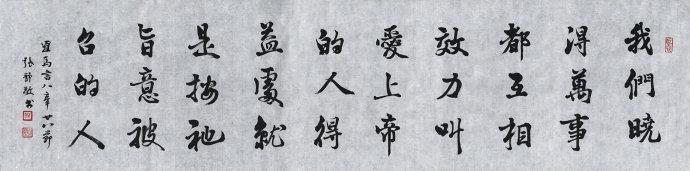 我們曉
得萬事
都互相
效力叫
愛上帝
的人得
益處就
是按祂
旨意被
召的人
羅馬書八章廿八節
張